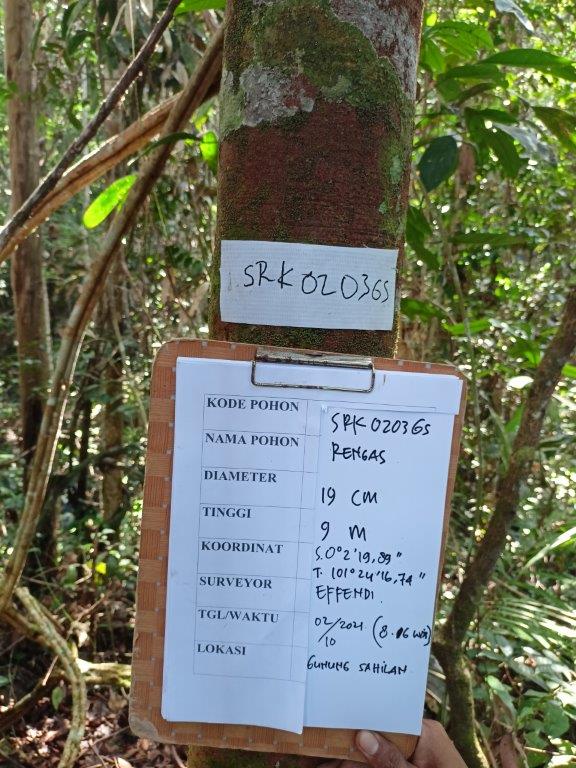 SRK02036S
KODE POHON SRK02036S
NAMA POHON RENGAS
DIAMETER 19 CM
TINGGI 9 M
KOORDINAT S.0°2'19,89"
T. 101°24'16,74"
SURVEYOR EFFENDI
TGL/WAKTU 02/2021 (8.16 WIB)
10
LOKASI GUNUNG SAHILAN